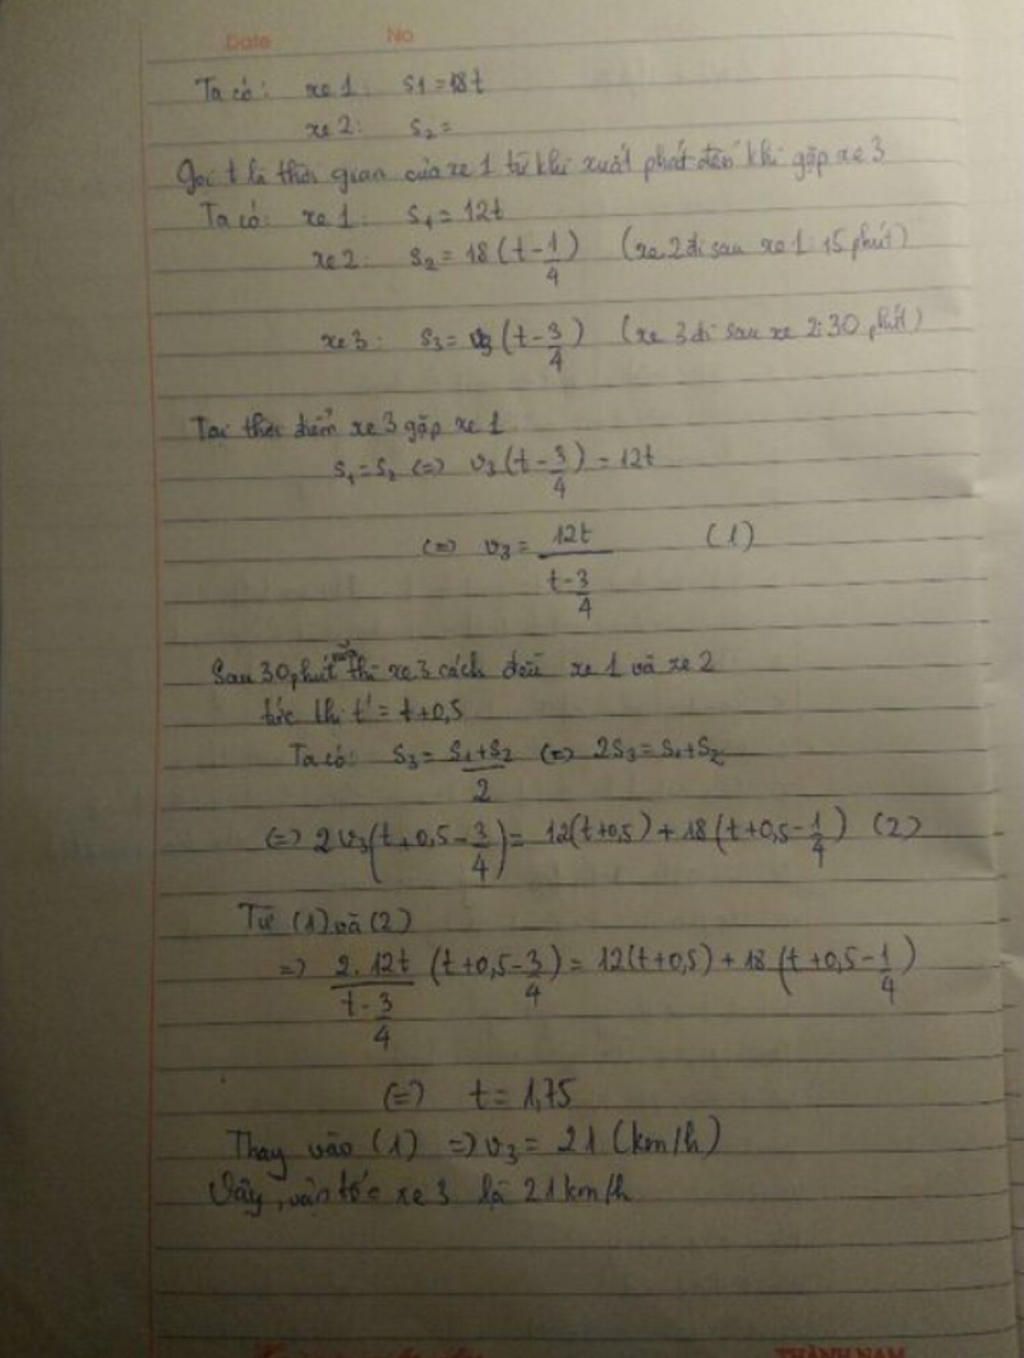 Date No
Ta có: xe 1: S1 = 18t
xe 2: S2 =
Gọi t là thời gian của xe 1 từ khi xuất phát đến khi gặp xe 3
Ta có: xe 1: S1 = 12t
xe 2: S2 = 18(t - 1/4) (xe 2 đi sau xe 1: 15 phút)
xe 3: S3 = v3(t - 3/4) (xe 3 đi sau xe 2: 30 phút)
Tại thời điểm xe 3 gặp xe 1
S1 = S2 <=> v3(t - 3/4) = 12t
<=> v3 = 12t/(t - 3/4) (1)
Sau 30 phút nữa thì xe 3 cách đều xe 1 và xe 2
tức là t' = t + 0,5
Ta có: S3 = (S1 + S2)/2 <=> 2S3 = S1 + S2
<=> 2v3(t + 0,5 - 3/4) = 12(t + 0,5) + 18(t + 0,5 - 1/4) (2)
Từ (1) và (2)
=> 2.12t/(t - 3/4) (t + 0,5 - 3/4) = 12(t + 0,5) + 18(t + 0,5 - 1/4)
<=> t = 1,75
Thay vào (1) => v3 = 21 (km/h)
Vậy, vận tốc xe 3 là 21km/h
THÀNH NAM